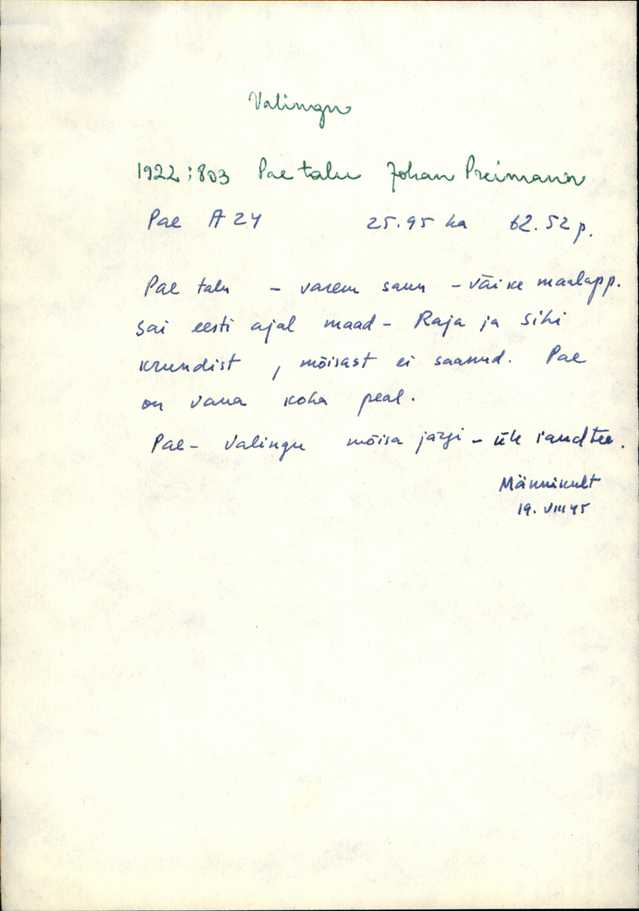 Valingu
1922:803 Pae talu Johan Preimann
Pae A 24 25.95 ha 62.52 p.
Pae talu - varem saun - väike maalapp.
Sai eesti ajal maad - Raja ja Sihi
krundist, mõisast ei saanud. Pae
on vana koha peal.
Pae - Valingu mõisa järgi -
Männikult
19. VIII 95